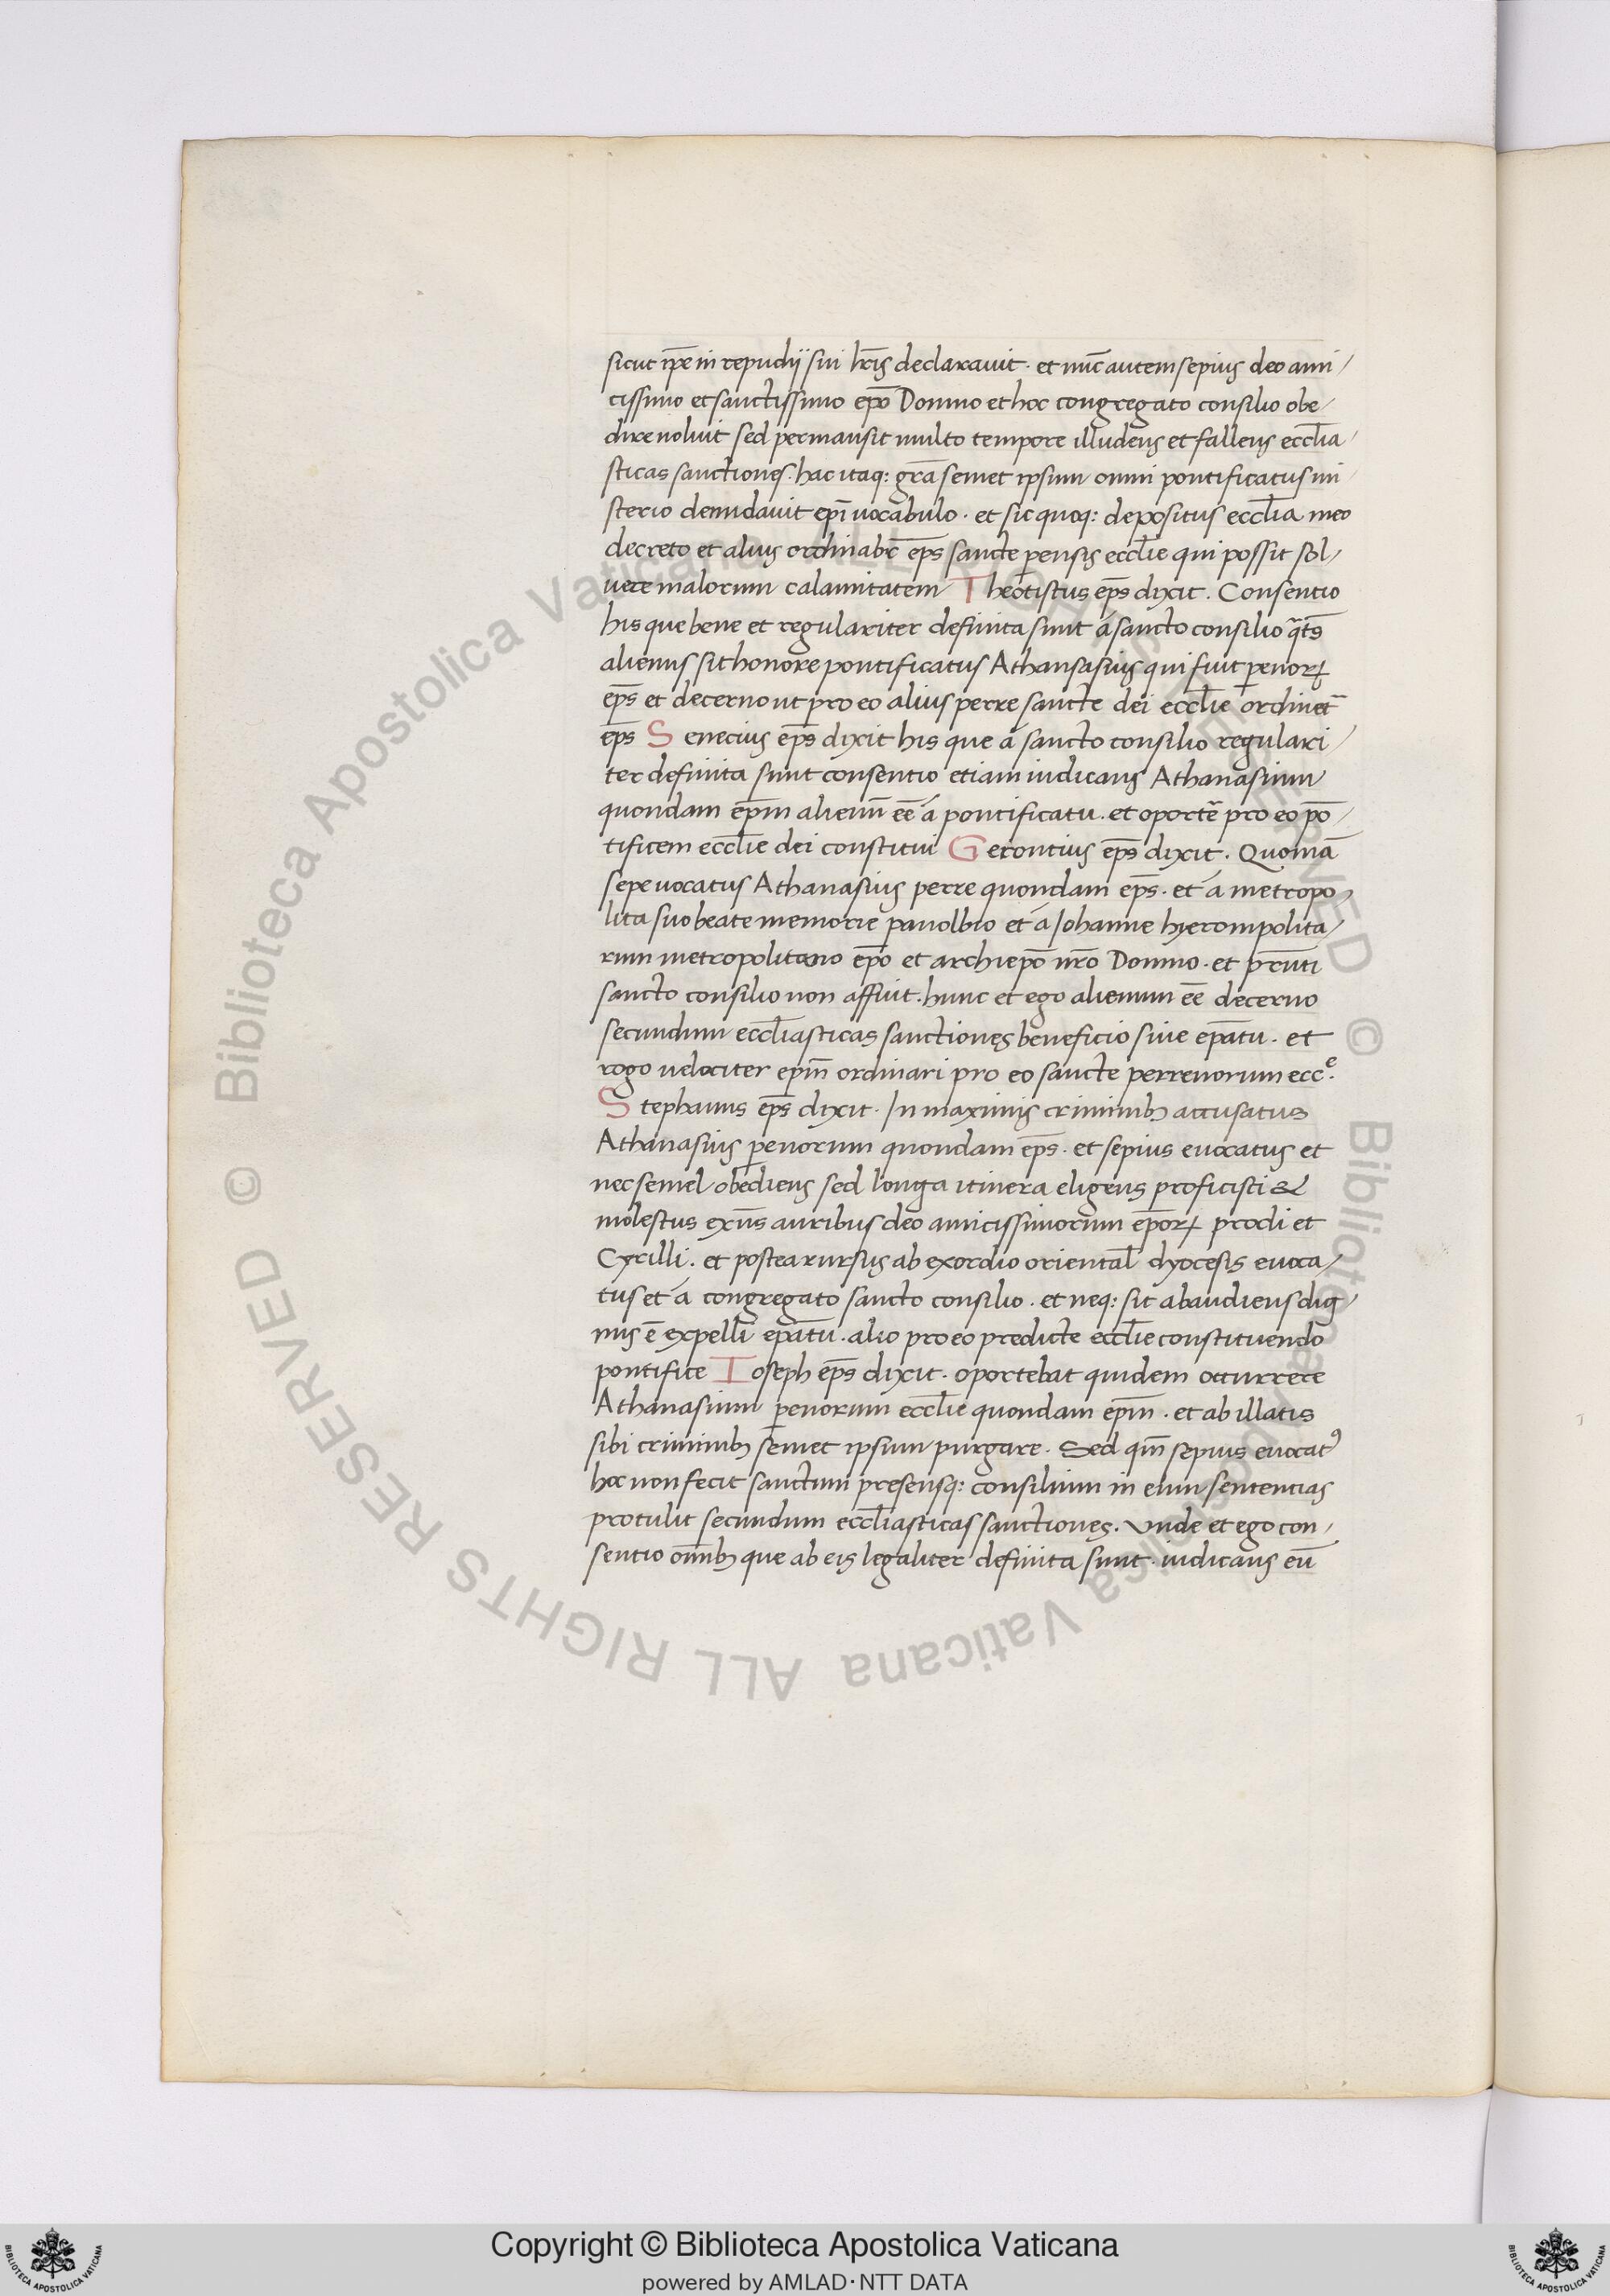 sicut ip̄e in repudij sui l̄ris declarauit · et nūc autem sepius deo ami/
cissimo et sanctissimo ep̄o Domno et hoc congregato consilio obe/
dire noluit sed permansit multo tempore illudens et fallens eccl̄ia/
sticas sanctiones · hac itaq: gr̄a semet ipsum omni pontificatus mi/
sterio denudauit ep̄i uocabulo · et sic quoq: depositus eccl̄ia meo
decreto et alius ordinabr̄ ep̄s sancte pensis eccl̄ie qui possit sol/
uere malorum calamitatem Theotistus ep̄s dixit . Consentio
his que bene et regulariter definita sunt á sancto consilio q̄ts
alienus sit honore pontificatus Athansasius qui fuit penoꝝ
ep̄s et decerno ut pro eo alius perre sancte dei eccl̄ie ordinet̄
ep̄s Senecius ep̄s dixit his que á sancto consilio regulari/
ter definita sunt consentio etiam iudicans Athanasium
quondam ep̄m alienū eē á pontificatu . et oportē pro eo pō/
tificem eccl̄ie dei constitui Gerontius ep̄s dixit . Quoniā
sepe uocatus Athanasius perre quondam ep̄s . et á metropo/
lita suo beate memorie panolbio et á Johanne hyerompolita/
rum metropolitano ep̄o et archiep̄o nr̄o Domno . et p̄ruti
sancto consilio non affuit . hunc et ego alienum eē decerno
secundum eccl̄iasticas sanctiones beneficio siue ep̄atu . et
rogo uelociter ep̄m ordinari pro eo sancte perrenorum eccͤ.
Stephanus ep̄s dixit . In maximis criminibꝫ accusatus
Athanasius penorum quondam ep̄s . et sepius euocatus et
nec semel obediens sed longa itinera eligens proficisci &
molestus exn̄s auribus deo amicissimorum ep̄oꝝ prodi et
Cyrilli . et postea rursus ab exordio oriental̄ dyocesis euoca/
tus et á congregato sancto consilio . et neq: sic abaudiens dig/
nus ē expelli ep̄atu . alio pro eo predicte eccl̄ie constituendo
pontifice Ioseph ep̄s dixit . oportebat quidem occurrere
Athanasium penorum eccl̄ie quondam ep̄m . et ab illatis
sibi criminibꝫ semet ipsum purgare . Sed qm̄ sepius euocatꝰ
hoc non fecit sanctum presensq: consilium in eum sententias
protulit secundum eccl̄iasticas sanctiones . Vnde et ego con/
sentio om̄ibꝫ que ab eis legaliter definita sunt . iudicans eū
© Biblioteca Apostolica Vaticana ALL RIGHTS RESERVED © Biblioteca Apostolica Vaticana ALL RIGHTS RESERVED
Copyright © Biblioteca Apostolica Vaticana
powered by AMLAD・NTT DATA
BIBLIOTECA APOSTOLICA VATICANA
BIBLIOTECA APOSTOLICA VATICANA